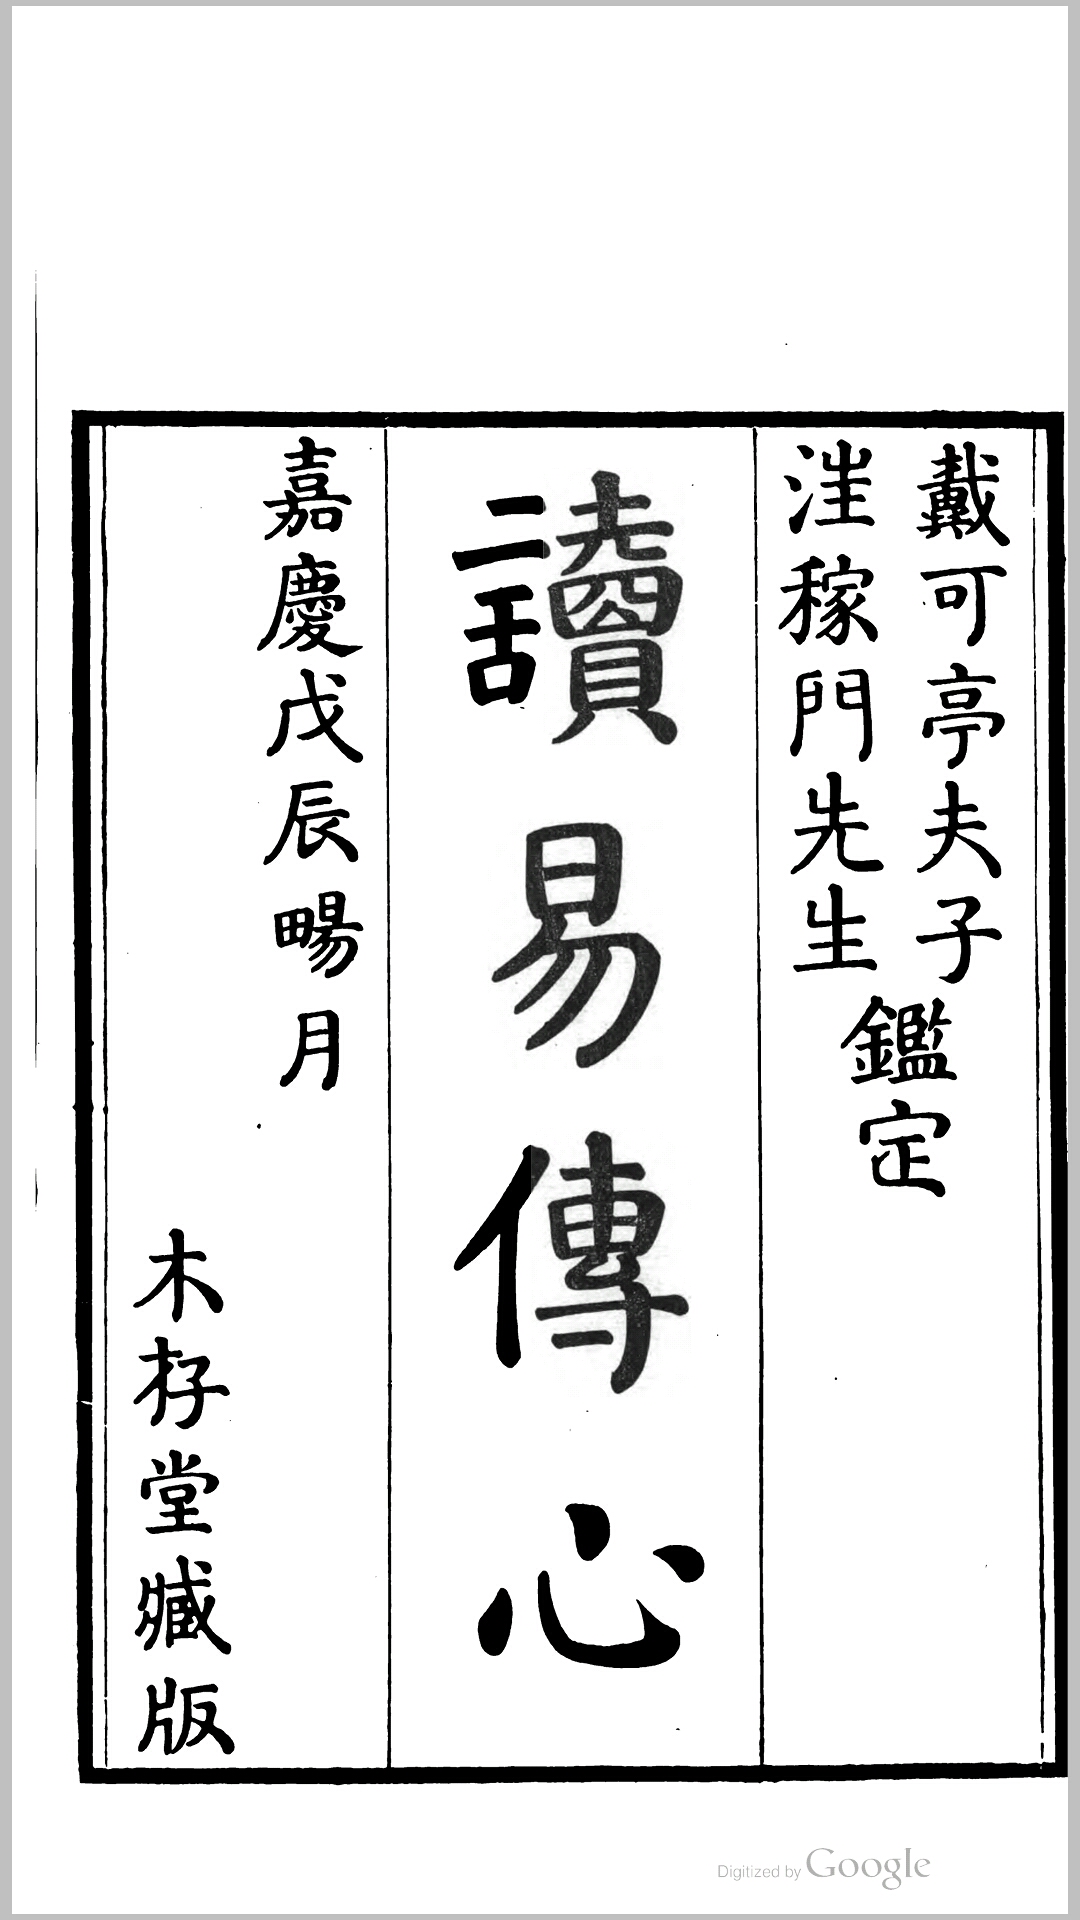 戴可亭夫子
汪稼門先生
鑑定
讀易傳心
嘉慶戊辰畼月
木杍堂臧版
Digitized by Google